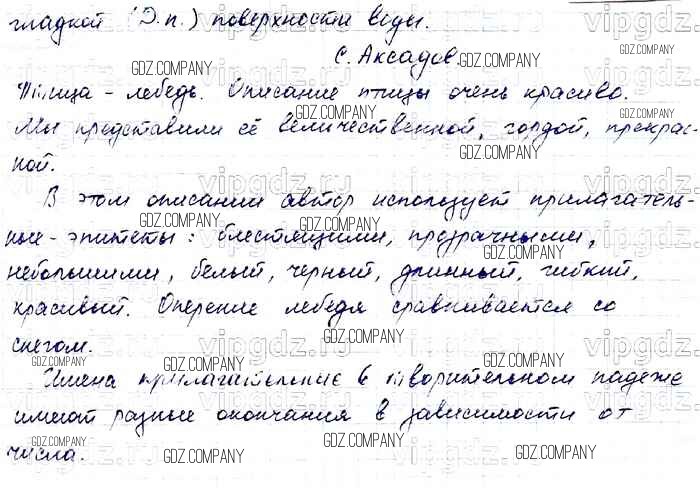 гладкой (Д.п.) поверхности воды.
С. Аксадов.
Птица - лебедь. Описание птицы очень красиво.
Мы представили её величественной, гордой, прекрас-
ной.
В этом описании автор использует прилагатель-
ные - эпитеты: блестящими, прозрачными,
небольшими, белый, черный, длинный, гибкий,
красивый. Оперение лебедя сравнивается со
снегом.
Имена прилагательные в творительном падеже
имеют разные окончания в зависимости от
числа.